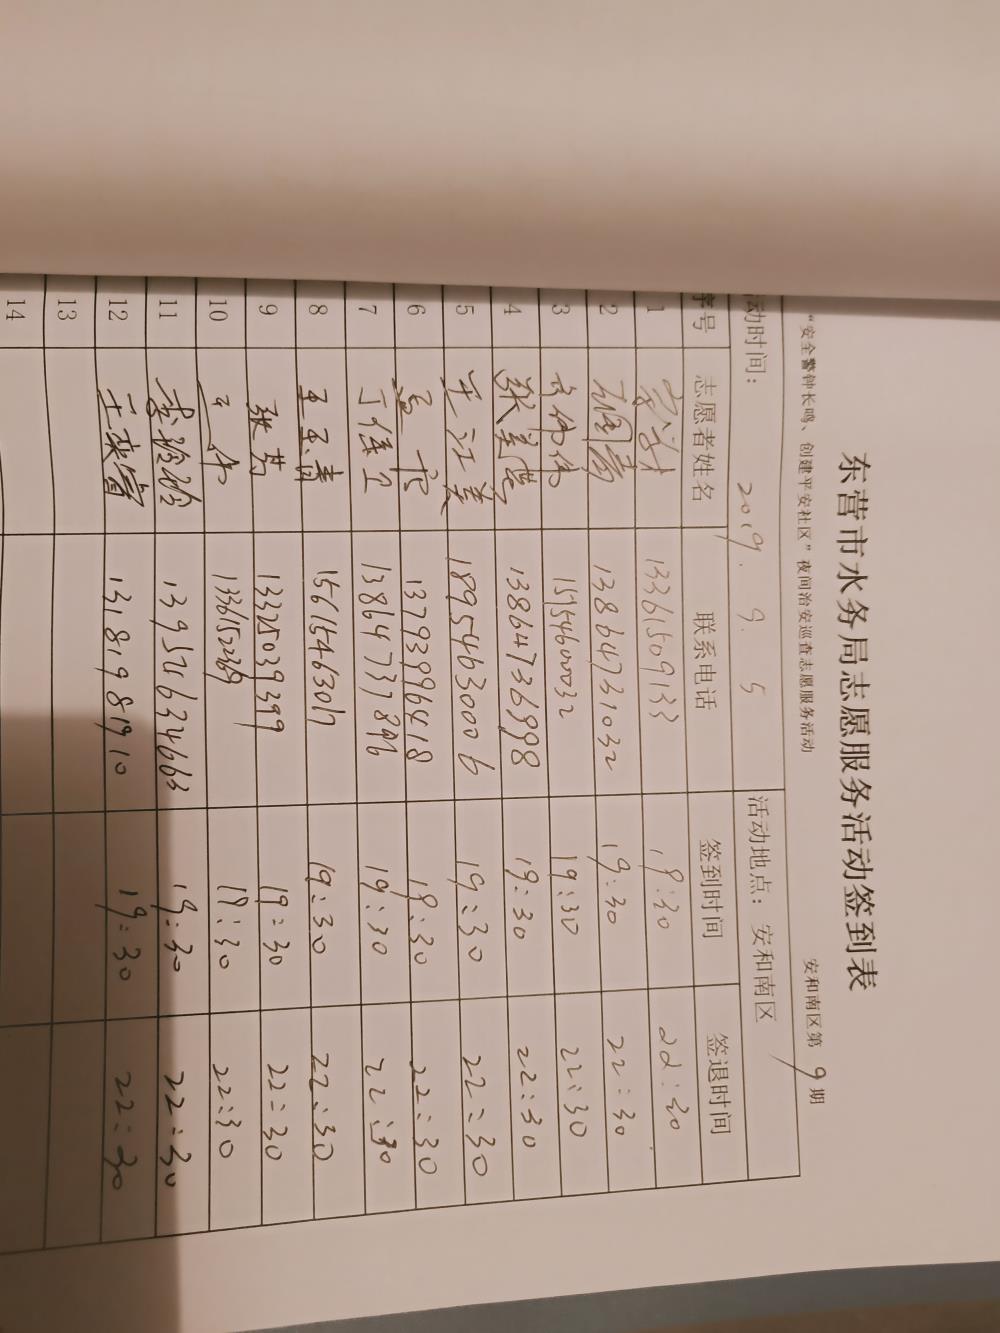 东营市水务局志愿服务活动签到表
“安全警钟长鸣、创建平安社区”夜间治安巡查志愿服务活动 安和南区第9期
活动时间： 2019. 9. 5 活动地点：安和南区
序号 志愿者姓名 联系电话 签到时间 签退时间
1 13361509133 19:30 22:30
2 13864731032 19:30 22:30
3 15154600032 19:30 22:30
4 张美 13864736998 19:30 22:30
5 王江美 18954630006 19:30 22:30
6 孟 13793996418 19:30 22:30
7 丁 13864737896 19:30 22:30
8 王玉清 15615463017 19:30 22:30
9 张 13325039399 19:30 22:30
10 王 13361522369 19:30 22:30
11 李玲玲 13957634663 19:30 22:30
12 王 13181981910 19:30 22:30
13
14